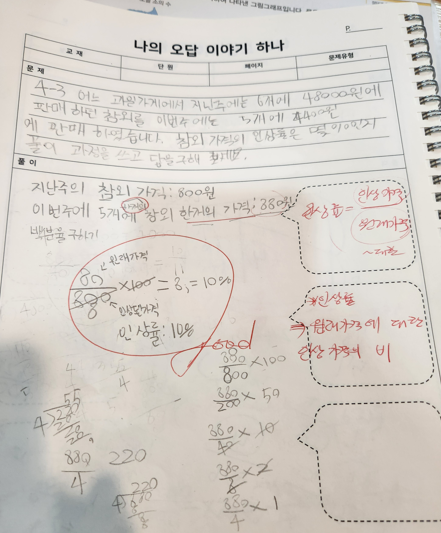 P
나의 오답 이야기 하나
교 재
단 원
페이지
문제유형
문 제
4-3 어느 과일가게에서 지난주에는 6개에 48000원에
판매하던 참외를 이번주에는 5개에 4400원
에 판매 하였습니다. 참외 가격의 인상률은 몇 %인지
풀이 과정을 쓰고 답을 구해 보세요.
풀 이
지난주의 참외 가격: 800원
이번주에 5개에 참외 한개의 가격: 880원
백분율 구하기
원래가격
80
800
8
×100 = 8, = 10%
인상된가격
인상률: 10%
good
인상률 = 인상가격
원래가격
~대한
*인상률
⇒ 원래가격에 대한
인상 가격의 비
880/800 × 100
880/200 × 50
880/40 × 10
880/8 × 2
880/4 × 1
55
4)220
880
4
220
220
4)880